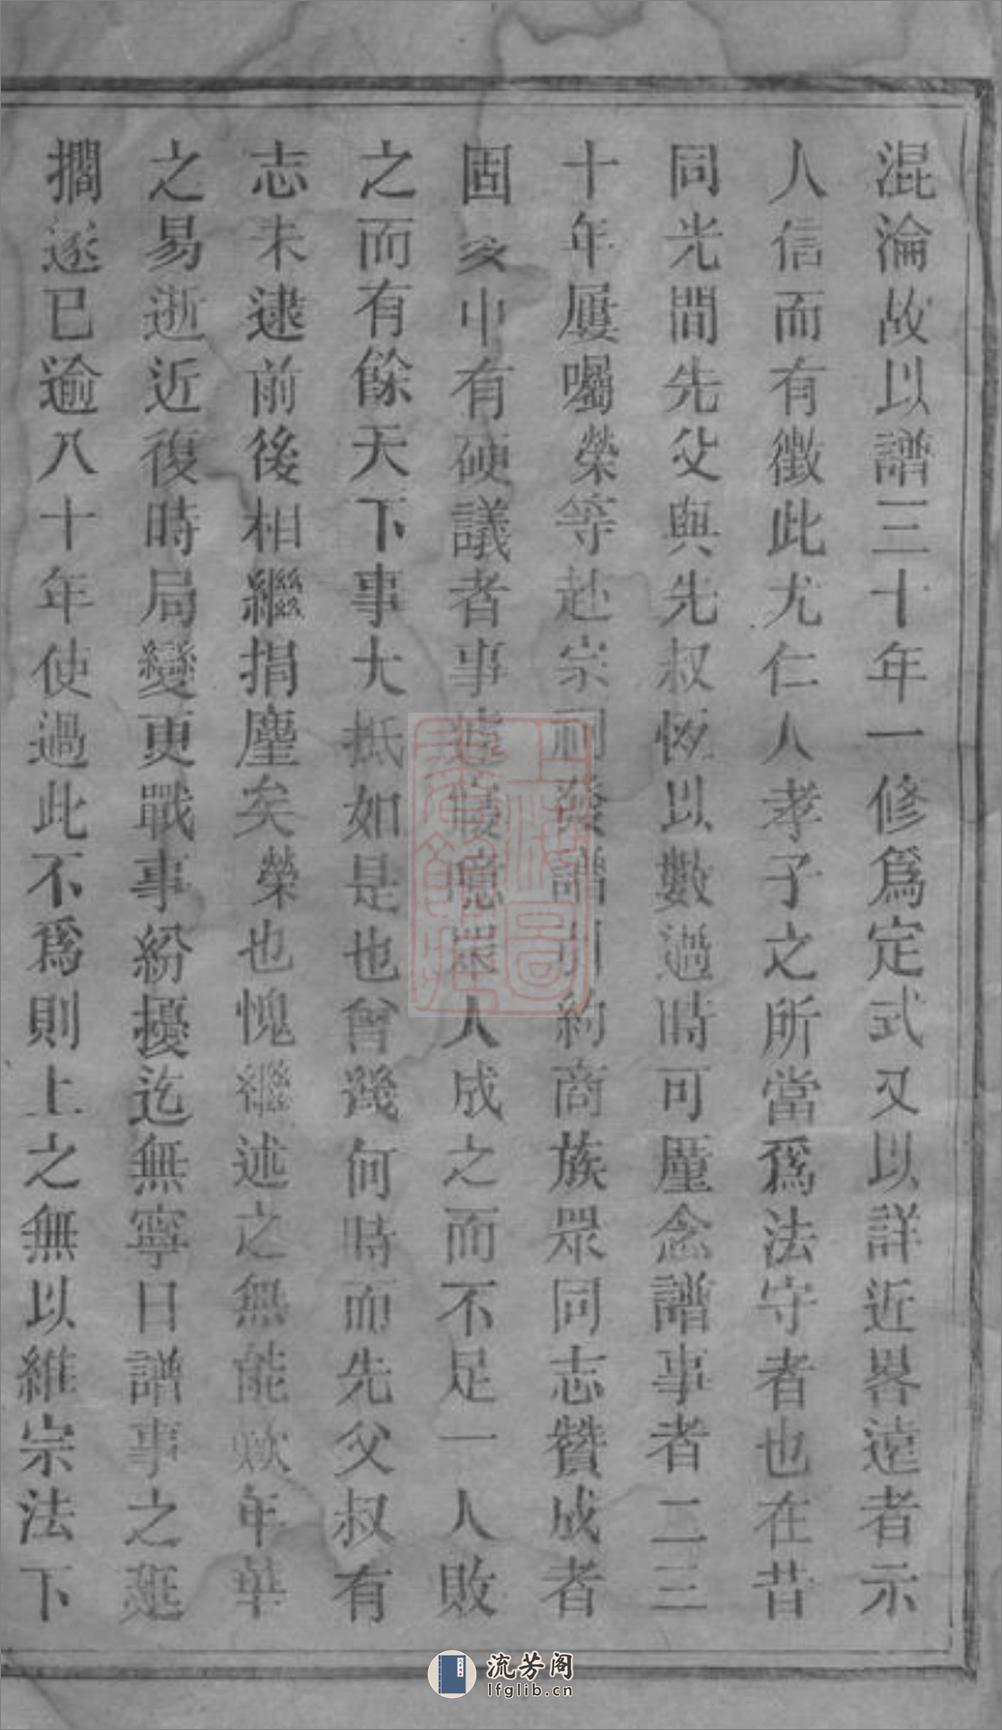 混淪故以譜三十年一修爲定式又以詳近畧遠者示
人信而有徵此尤仁人孝子之所當爲法守者也在昔
同光間先父與先叔恆以數過時可厪念譜事者二三
十年屢囑榮等赴宗祠發譜引約商族眾同志贊成者
固多中有硬議者事遠寢噫衆人成之而不足一人敗
之而有餘天下事大抵如是也曾幾何時而先父叔有
志未逮前後相繼捐塵矣榮也愧繼述之無能歎年華
之易逝近復時局變更戰事紛擾迄無寧日譜事之延
擱遂已逾八十年使過此不爲則上之無以維宗法下
流芳阁
lfglib.cn